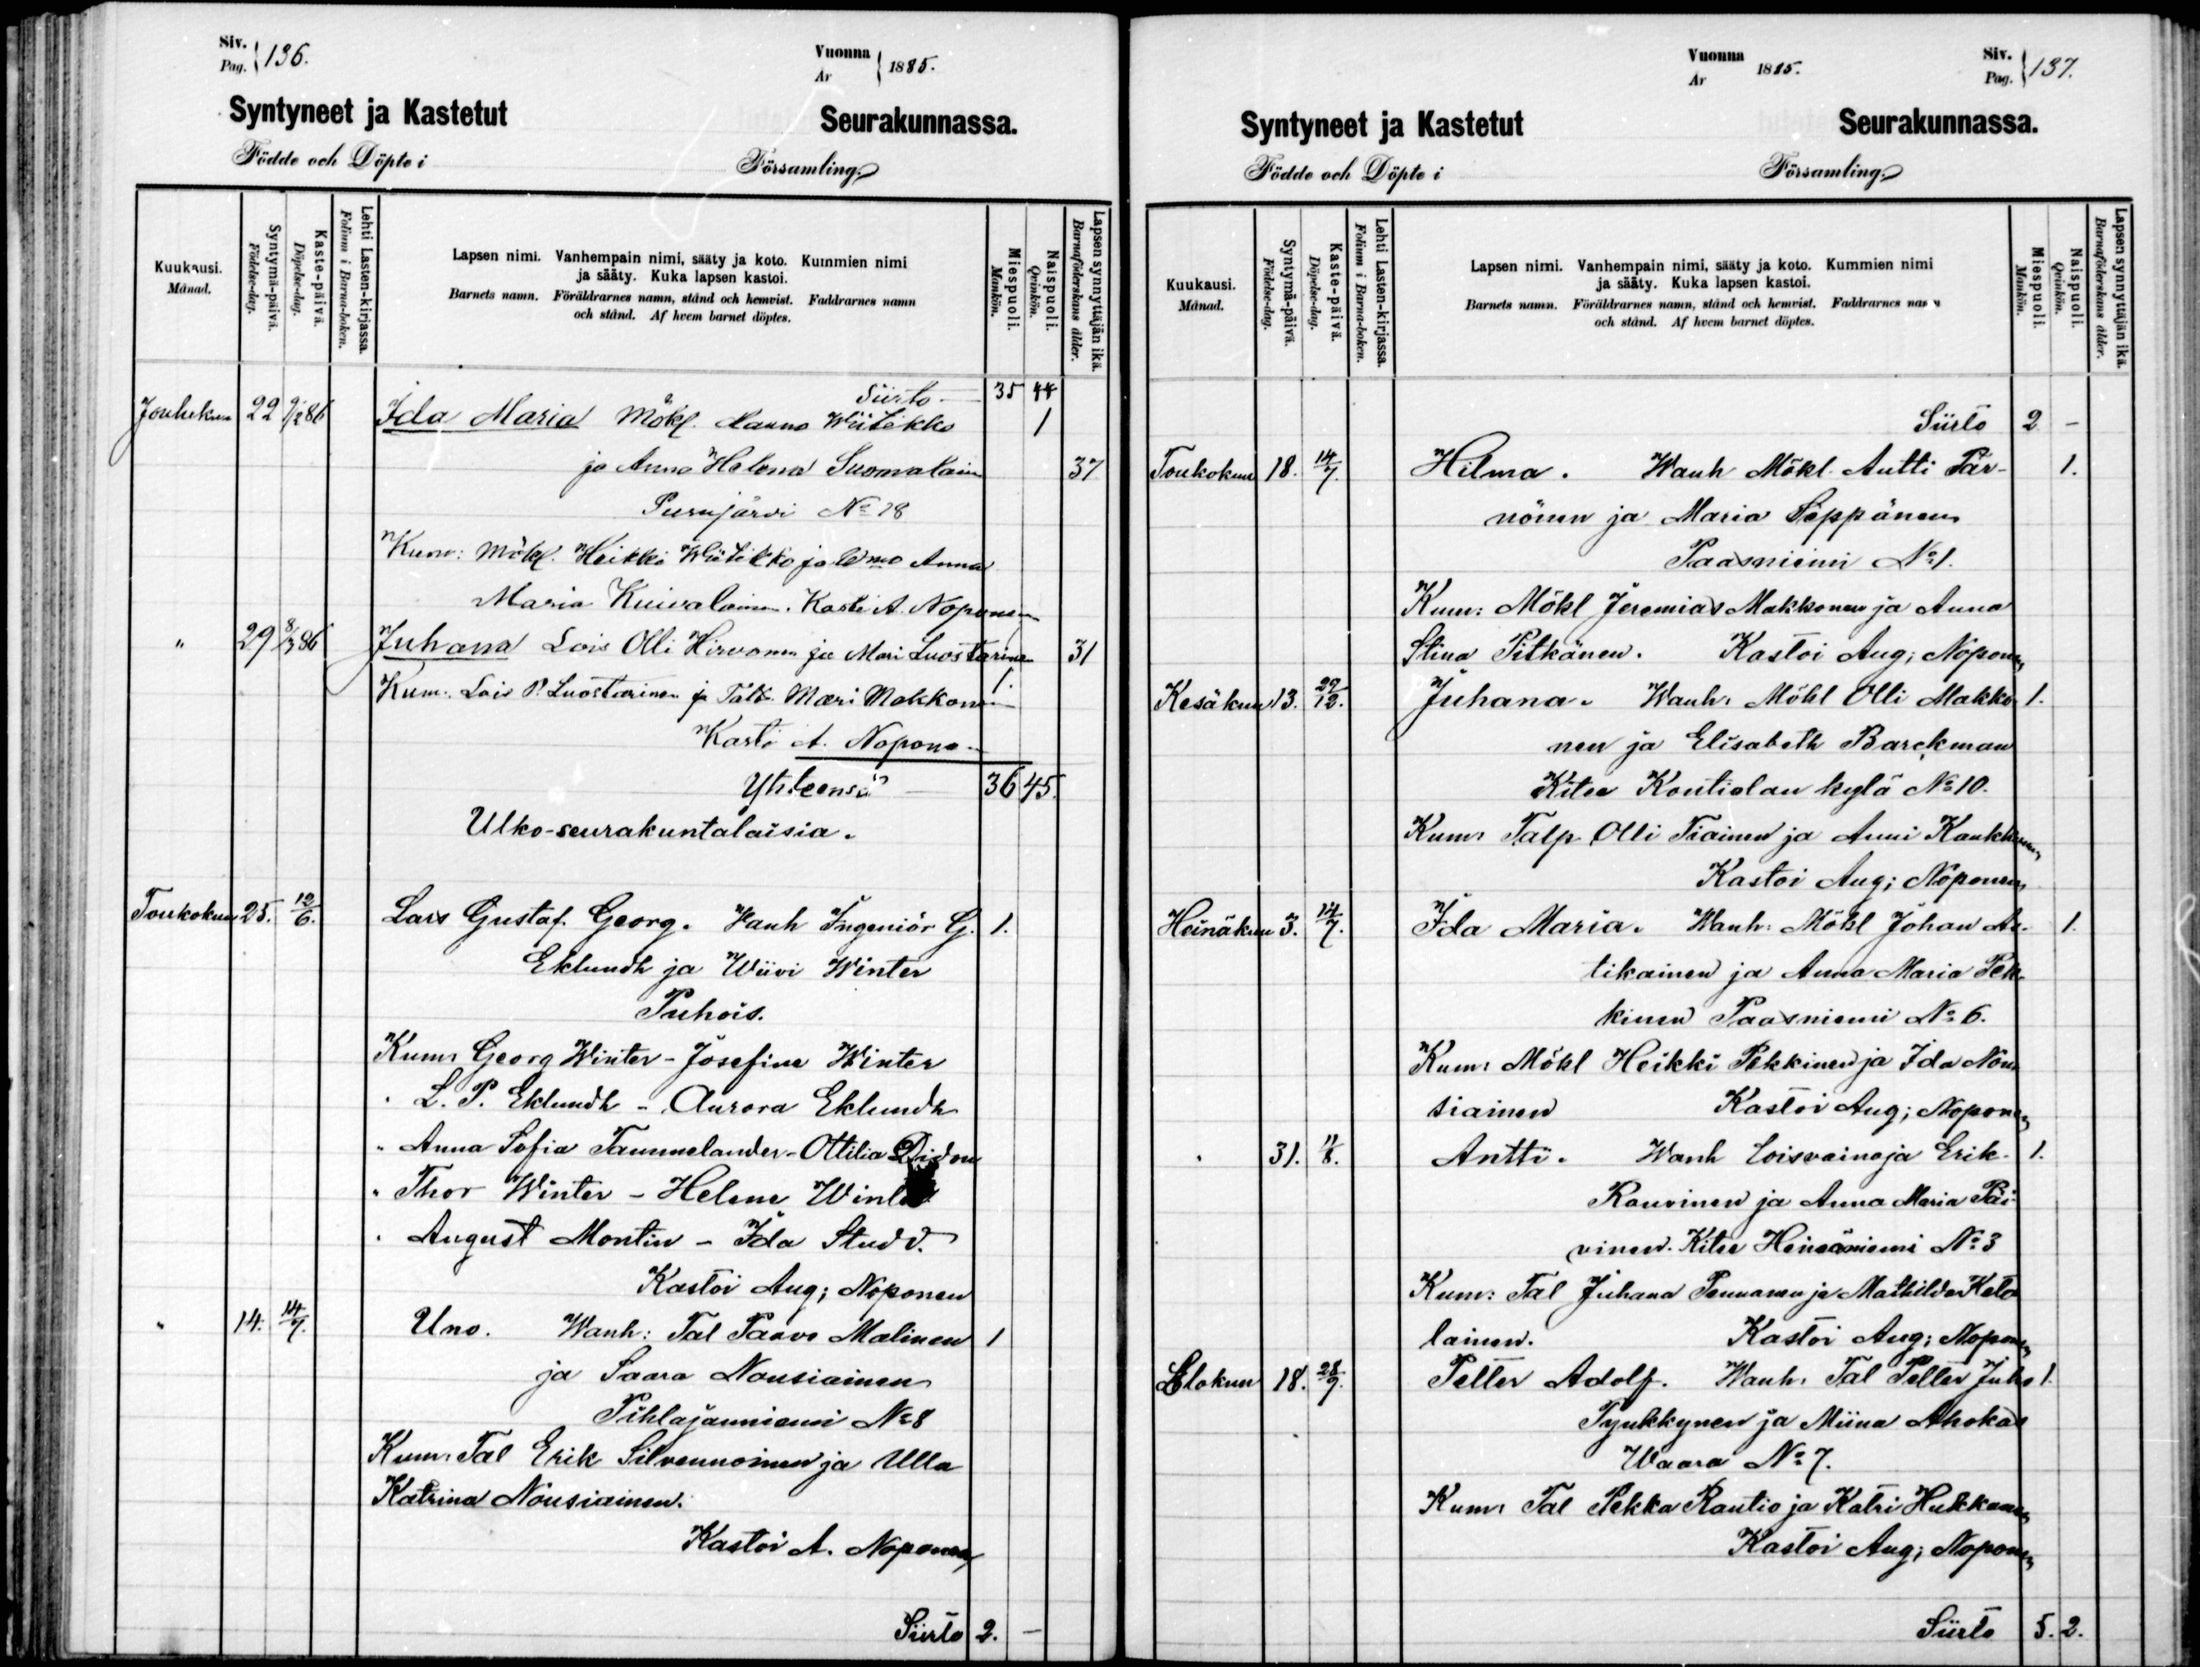 Siv. Pag. 136.
Vuonna År 1885.
Syntyneet ja Kastetut Seurakunnassa.
Födde och Döpte i Församling.
Kuukausi. Månad.
Syntymä-päivä. Födelse-dag.
Kaste-päivä. Döpelse-dag.
Lehti Lasten-kirjassa. Folium i Barna-boken.
Lapsen nimi. Vanhempain nimi, sääty ja koto. Kummien nimi
ja sääty. Kuka lapsen kastoi.
Barnets namn. Föräldrarnes namn, stånd och hemvist. Faddrarnes namn
och stånd. Af hvem barnet döptes.
Miespuoli. Mankön.
Naispuoli. Qvinkön.
Lapsen synnyttäjän ikä. Barnaföderskans ålder.
Siirto 35 44
Joulukuu 22 9/2 86 Ida Maria Mökl. Manno Wiitikko 1
ja Anna Helena Suomalain 37
Purujärvi No 18
Kum: Mökl. Heikki Wiitikko ja Anna
Maria Kuivalainen. Kasti A. Noponen
" 29 8/3 86 Juhana Lois Olli Hirvonen ja Mari Luostarinen 31
Kum. Lois P. Luostarinen ja Mari Makkonen 1.
Kasti A. Noponen
Yhteensä 36 45.
Ulko-seurakuntalaisia.
Toukokuu 25. 12/6. Lars Gustaf Georg. Wanh Ingeniör G. 1.
Eklundh ja Wiivi Winter
Puhois.
Kum: Georg Winter - Josefine Winter
" L. P. Eklundh - Aurora Eklundh
" Anna Sofia Tammelander - Ottilia Didon
" Thor Winter - Helene Winter
" August Montin - Ida Studd.
Kastoi Aug; Noponen
" 14. 14/7. Uno. Wanh: Tal Paavo Malinen 1
ja Saara Nousiainen
Pihlajanniemi No 8
Kum: Tal Erik Silvennoinen ja Ulla
Katrina Nousiainen.
Kastoi A. Noponen
Siirto 2. -
Vuonna År 1885.
Siv. Pag. 137.
Syntyneet ja Kastetut Seurakunnassa.
Födde och Döpte i Församling.
Kuukausi. Månad.
Syntymä-päivä. Födelse-dag.
Kaste-päivä. Döpelse-dag.
Lehti Lasten-kirjassa. Folium i Barna-boken.
Lapsen nimi. Vanhempain nimi, sääty ja koto. Kummien nimi
ja sääty. Kuka lapsen kastoi.
Barnets namn. Föräldrarnes namn, stånd och hemvist. Faddrarnes namn
och stånd. Af hvem barnet döptes.
Miespuoli. Mankön.
Naispuoli. Qvinkön.
Lapsen synnyttäjän ikä. Barnaföderskans ålder.
Siirto 2 -
Toukokuu 18. 14/7. Hilma. Wanh Mökl. Antti Pär- 1.
nönen ja Maria Seppänen
Paasniemi No 1.
Kum: Mökl Jeremias Makkonen ja Anna
Stina Pitkänen. Kastoi Aug; Noponen
Kesäkuu 13. 27/12. Juhana. Wanh: Mökl Olli Makko- 1.
nen ja Elisabeth Barckman
Kitee Kontiolan kylä No 10.
Kum: Talp Olli Tiainen ja Anni Kaukkunen
Kastoi Aug; Noponen
Heinäkuu 3. 14/7. Ida Maria. Wanh: Mökl Johan An- 1.
tikainen ja Anna Maria Pek-
kinen Paasniemi No 6.
Kum: Mökl Heikki Pekkinen ja Ida Nou-
siainen Kastoi Aug; Noponen
" 31. 11/8. Antti. Wanh Loisvainaja Erik 1.
Rouvinen ja Anna Maria Päi-
vinen. Kitee Heinäniemi No 3
Kum: Tal Juhana Pennanen ja Mathilda Keto-
lainen. Kastoi Aug; Noponen
Elokuu 18. 28/9. Petter Adolf. Wanh: Tal Petter Juho 1.
Tynkkynen ja Miina Ahokas
Waara No 7.
Kum: Tal Pekka Rautio ja Katri Hukkanen
Kastoi Aug; Noponen
Siirto 5. 2.